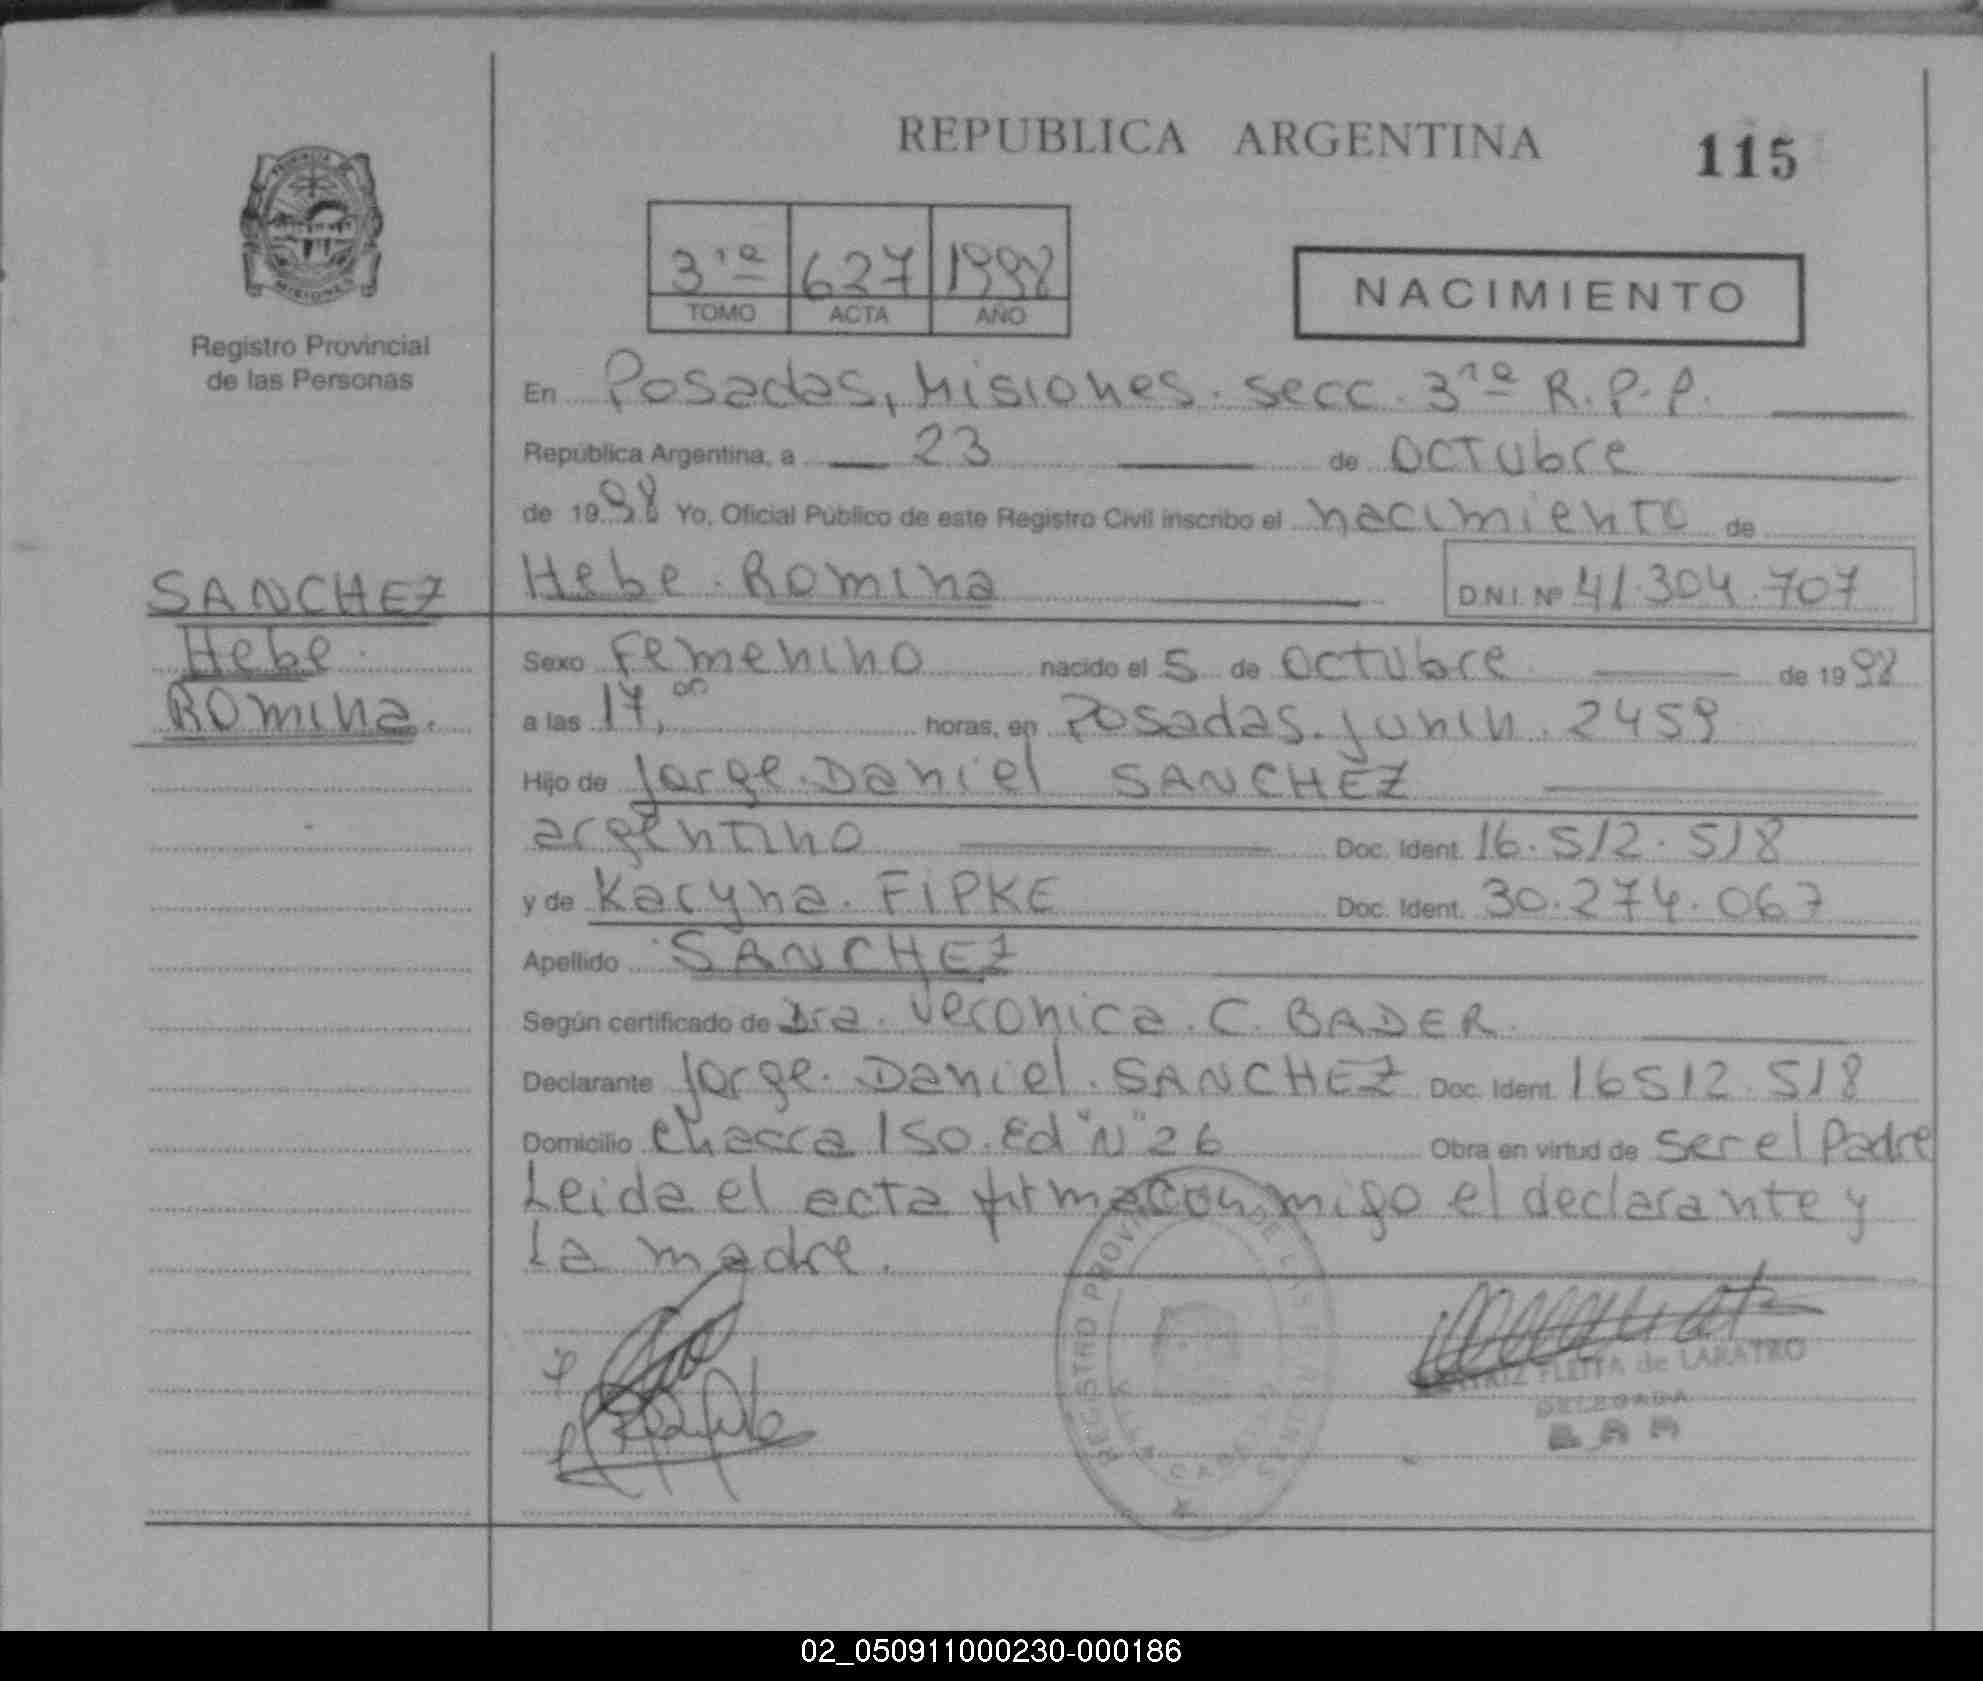 REPUBLICA ARGENTINA
115
PROVINCIA
MISIONES
Registro Provincial
de las Personas
3ra 627 1998
TOMO ACTA AÑO
NACIMIENTO
En Posadas, Misiones. secc. 3ra R.P.P.
República Argentina, a 23 de Octubre
de 1998 Yo, Oficial Público de este Registro Civil inscribo el nacimiento de
Hebe Romina D.N.I. Nº 41.304.707
SANCHEZ
Hebe
Romina.
Sexo Femenino nacido el 5 de Octubre de 1998
a las 17,00 horas, en Posadas. Junin. 2459
Hijo de Jorge Daniel SANCHEZ
argentino Doc. Ident. 16.512.518
y de Karyna. FIPKE Doc. Ident. 30.274.067
Apellido SANCHEZ
Según certificado de Dra. Veronica. C. BADER.
Declarante Jorge. Daniel. SANCHEZ Doc. Ident. 16512.518
Domicilio Chacra 150. Ed "N" 26 Obra en virtud de ser el Padre
Leida el acta firma conmigo el declarante y
La madre.
REGISTRO PROVINCIAL DE LAS
FLEITA de LARATRO
DELEGADA
02_050911000230-000186